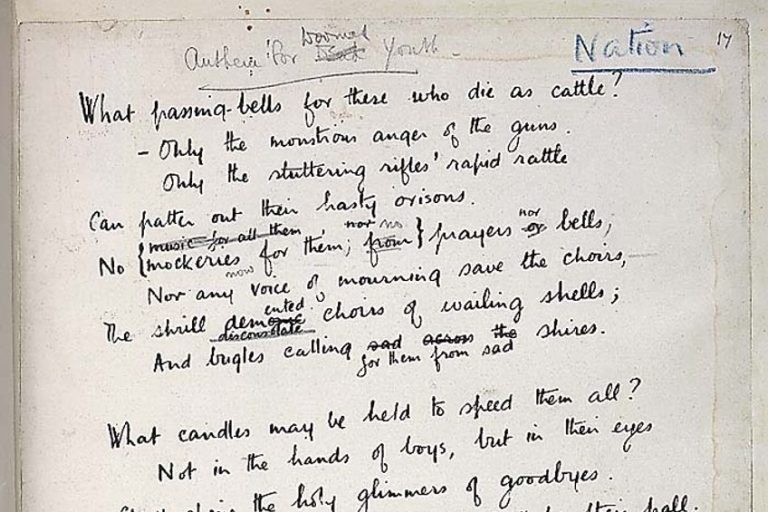 Anthem for Dead Doomed Youth - Nation 17
What passing-bells for these who die as cattle?
- Only the monstrous anger of the guns.
Only the stuttering rifles' rapid rattle
Can patter out their hasty orisons.
music for all them nor no nor
No { mockeries for them; from } prayers or bells,
now
Nor any voice of mourning save the choirs,-
ented
The shrill demonic choirs of wailing shells;
disconsolate
And bugles calling sad across the shires.
for them from sad
What candles may be held to speed them all?
Not in the hands of boys, but in their eyes
the holy glimmers of goodbyes.
their pall.